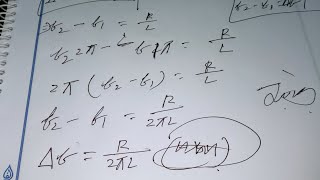 ω₂ - ω₁ = R/L
f₂ 2π - f₁ 2π = R/L
2π (f₂ - f₁) = R/L
f₂ - f₁ = R/2πL
Δf = R/2πL